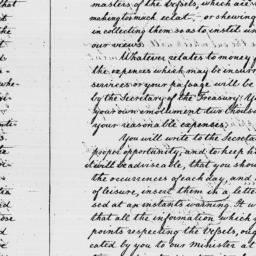 that
masters of the Vessels, which are
making too much eclat, or shewing
the
in collecting them so as to instil un
our views.
Whatever relates to money f
the expences which may be incurr
services or your passage will be
by the Secretary of the Treasury. Yo
your own emolument two thous
your reasonable expenses.
You will write to the Secreta
proper opportunity, and to keep hi
it will be adviseable, that you shou
the occurrences of each day, and
of leisure, insert them in a lette
sed at an instants warning. It w
that all the information, which
points respecting the Vessels, oug
cated by you to our Minister at